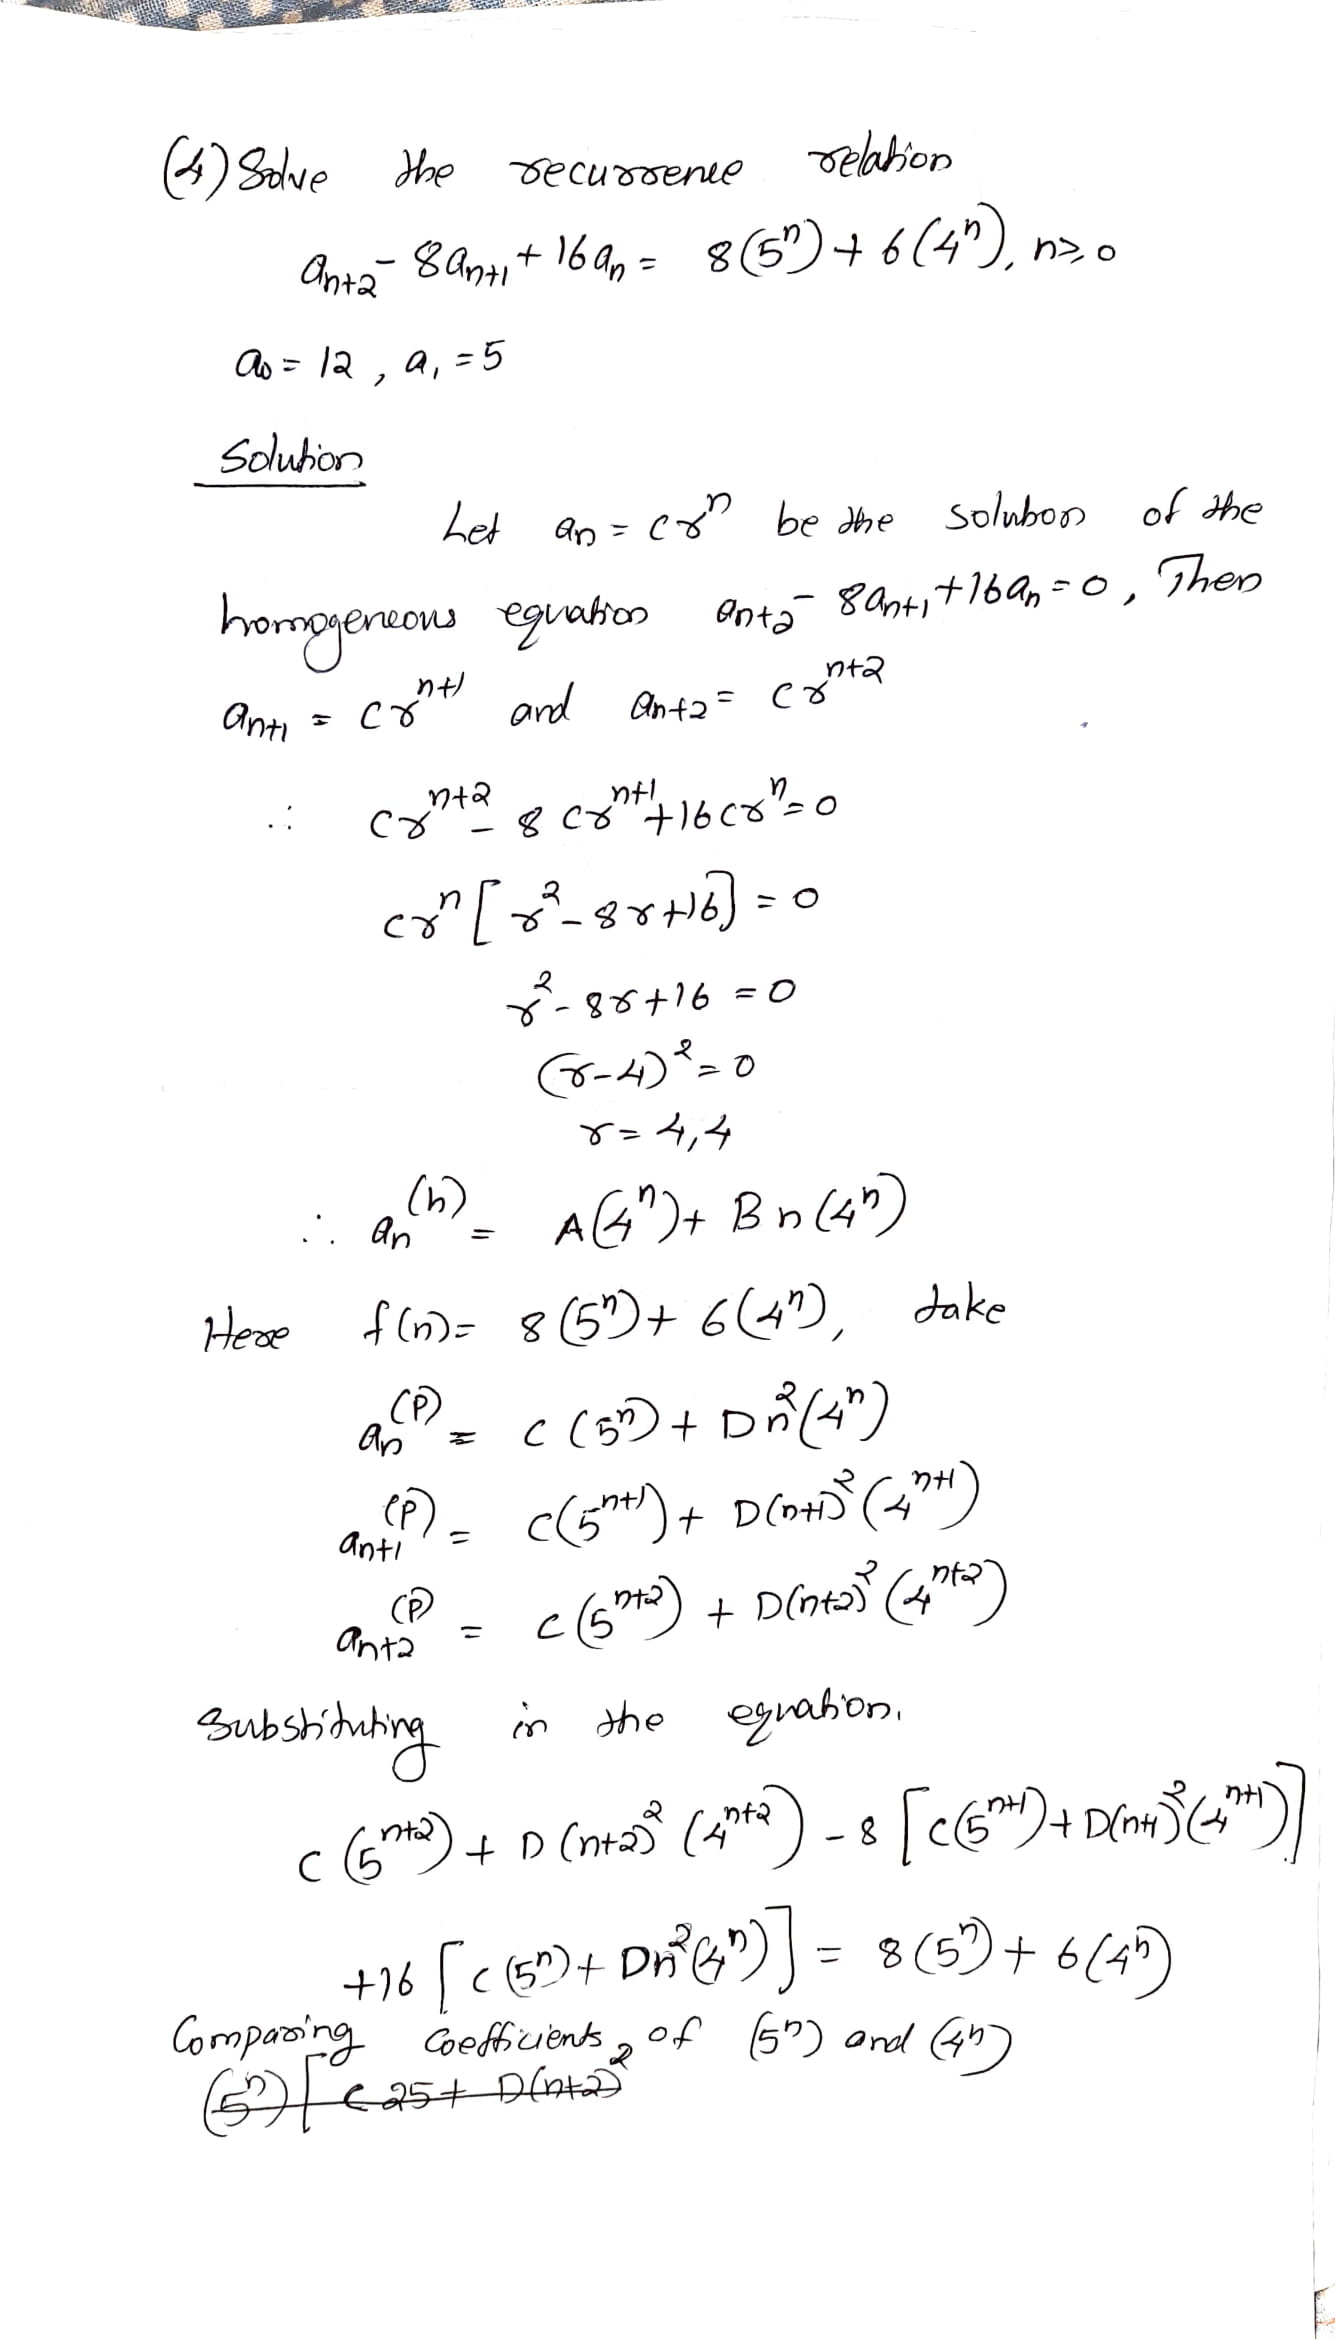 (4) Solve the recurrence relation
aₙ₊₂ - 8aₙ₊₁ + 16aₙ = 8(5ⁿ) + 6(4ⁿ), n≥0
a₀ = 12, a₁ = 5
Solution
Let aₙ = crⁿ be the solution of the
homogeneous equation aₙ₊₂ - 8aₙ₊₁ + 16aₙ = 0, Then
aₙ₊₁ = crⁿ⁺¹ and aₙ₊₂ = crⁿ⁺²
∴ crⁿ⁺² - 8crⁿ⁺¹ + 16crⁿ = 0
crⁿ[r² - 8r + 16] = 0
r² - 8r + 16 = 0
(r-4)² = 0
r = 4,4
∴ aₙ⁽ʰ⁾ = A(4ⁿ) + Bn(4ⁿ)
Here f(n) = 8(5ⁿ) + 6(4ⁿ), take
aₙ⁽ᴾ⁾ = C(5ⁿ) + Dn²(4ⁿ)
aₙ₊₁⁽ᴾ⁾ = C(5ⁿ⁺¹) + D(n+1)²(4ⁿ⁺¹)
aₙ₊₂⁽ᴾ⁾ = C(5ⁿ⁺²) + D(n+2)²(4ⁿ⁺²)
Substituting in the equation,
C(5ⁿ⁺²) + D(n+2)²(4ⁿ⁺²) - 8[C(5ⁿ⁺¹) + D(n+1)²(4ⁿ⁺¹)]
+16[C(5ⁿ) + Dn²(4ⁿ)] = 8(5ⁿ) + 6(4ⁿ)
Comparing Coefficients of (5ⁿ) and (4ⁿ)
(5ⁿ)[C 25 + D(n+2)²